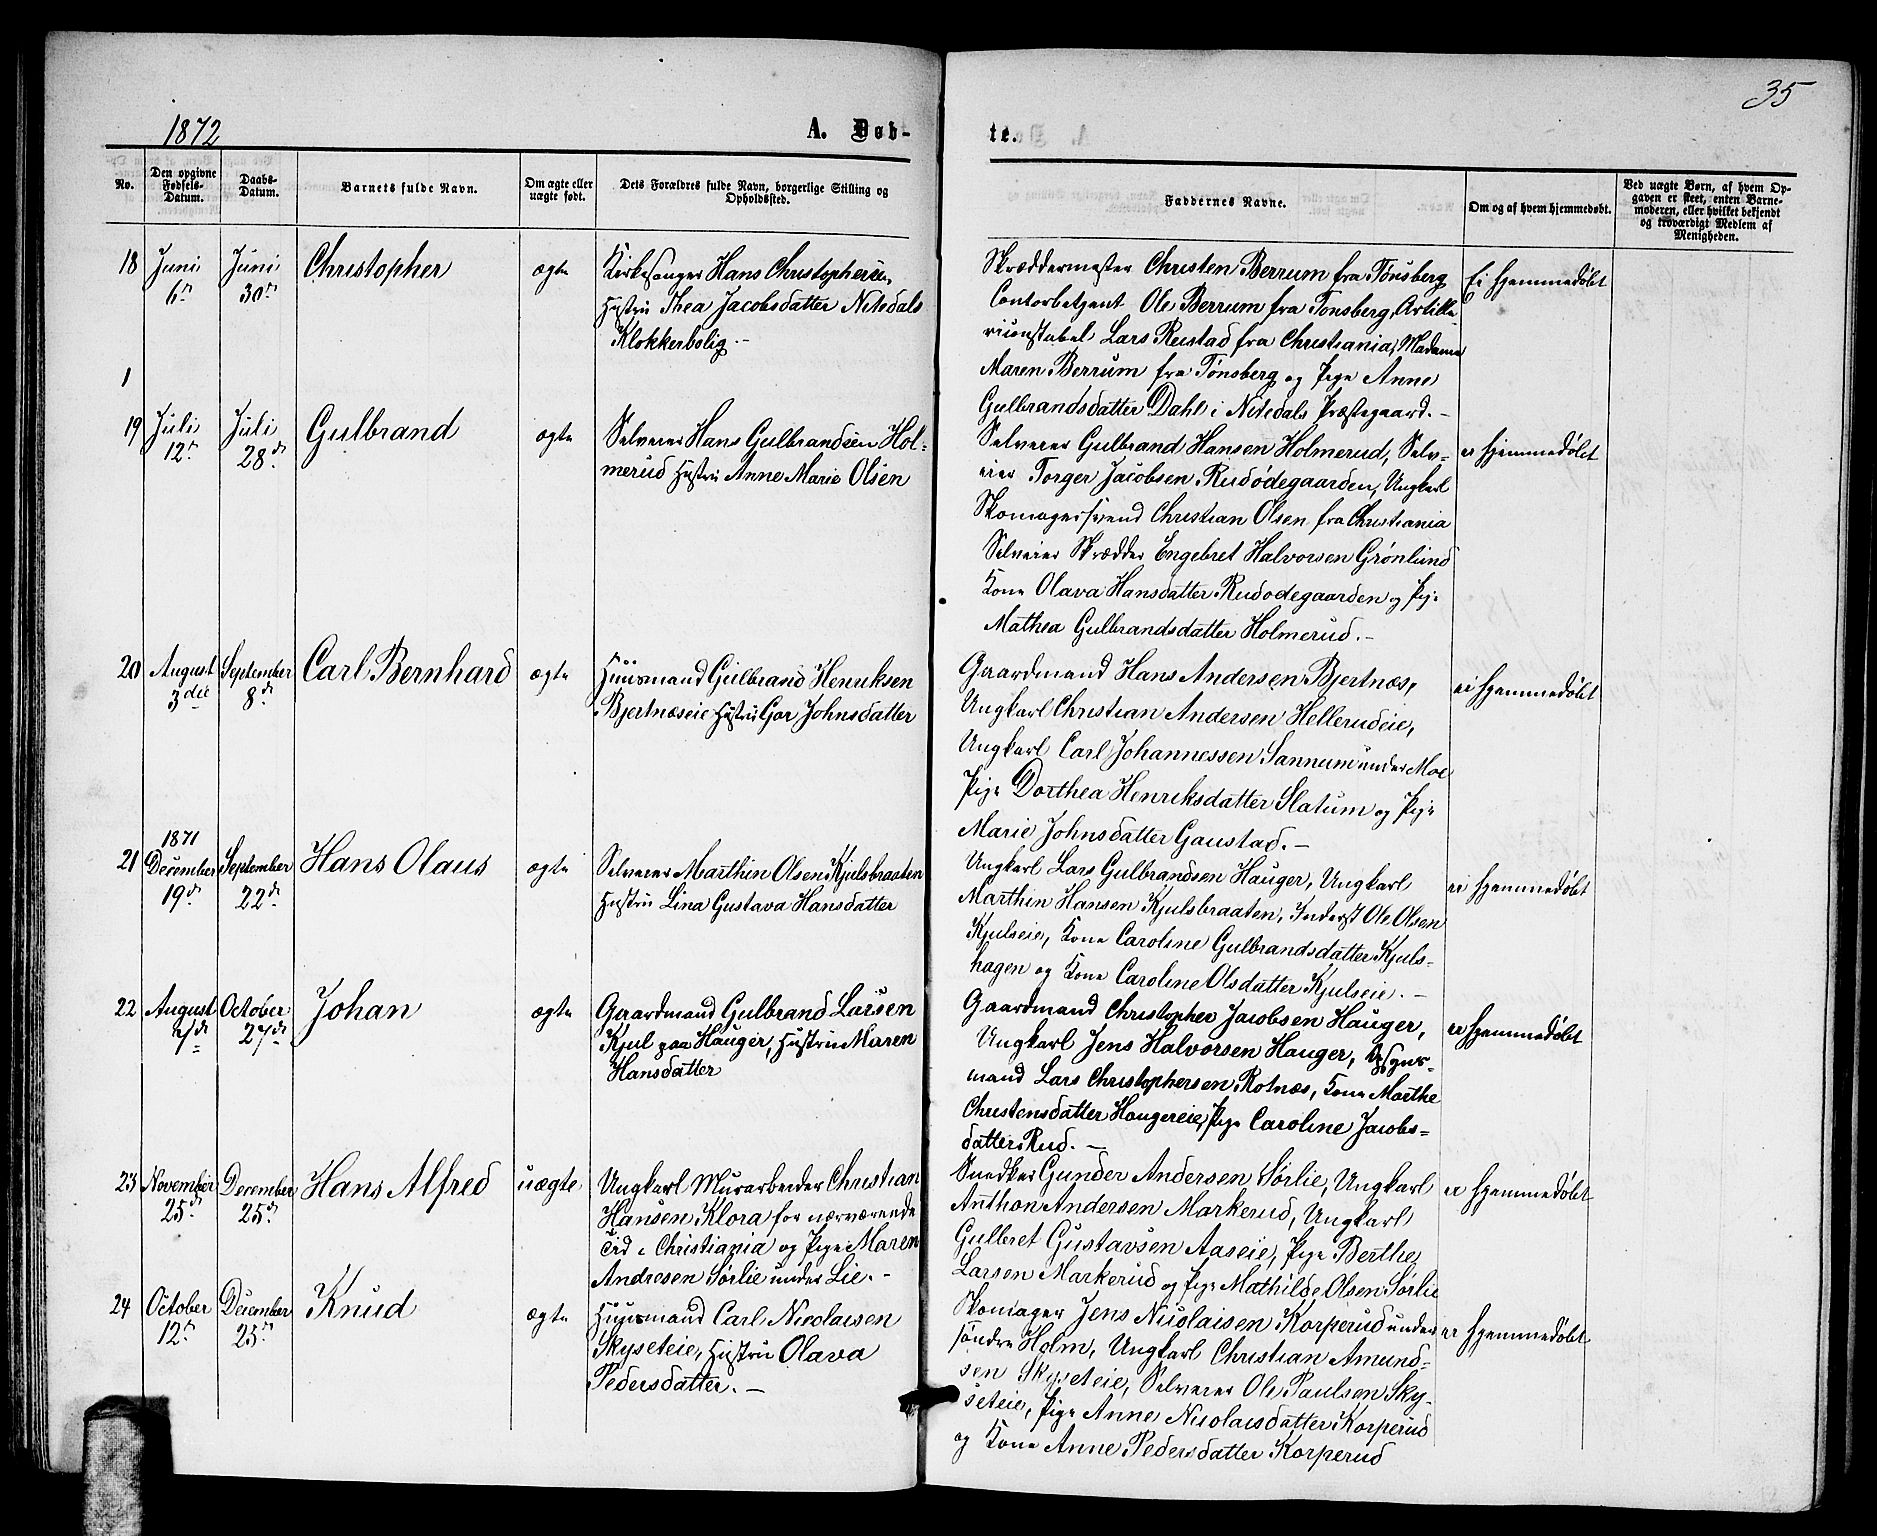 1872
A. Døb-
te.
35
No.
Den opgivne Fødsels-Datum.
Daabs-Datum.
Barnets fulde Navn.
Om ægte eller uægte født.
Dets Forældres fulde Navn, borgerlige Stilling og Opholdssted.
Faddernes Navne.
Om og af hvem hjemmedøbt.
Ved uægte Børn, af hvem Op-
gaven er skeet, enten Barne-
moderen, eller hvilket bekjendt
og troværdigt Medlem af
Menigheden.
18 Juni 6te Juni 30te Christopher ægte
Kirkesanger Hans Christophersen,
Hustru Thea Jacobsdatter Nitedals
Klokkerbolig.-
Skræddermester Christen Berrum fra Tønsberg
Contorbetjent Ole Berrum fra Tønsberg, Artille-
riconstabel Lars Reistad fra Christiania, Madame
Maren Berrum fra Tønsberg og Pige Anne
Gulbrandsdatter Dahl i Nitedals Præstegaard.-
Ei hjemmedøbt
1
19 Juli 12te Juli 28de Gulbrand ægte
Selveier Hans Gulbrandsen Hol-
merud Hustru Anne Marie Olsen
Selveier Gulbrand Hansen Holmerud, Selv-
eier Torger Jacobsen Rudødegaarden, Ungkarl
Skomagersvend Christian Olsen fra Christiania
Selveier Skrædder Engebret Halvorsen Grønlund
Kone Olava Hansdatter Rudødegaarden og Pige
Mathea Gulbrandsdatter Holmerud.-
ei hjemmedøbt
20 August 3die September 8de Carl Bernhard ægte
Huusmand Gulbrand Henriksen
Bjertnæseie Hustru Gor Johnsdatter
Gaardmand Hans Andersen Bjertnæs,
Ungkarl Christian Andersen Hellerudeie,
Ungkarl Carl Johannessen Sannum under Moe
Pige Dorthea Henriksdatter Slatum og Pige
Marie Johnsdatter Gaustad.-
ei hjemmedøbt
1871
21 December 19de September 22de Hans Olaus ægte
Selveier Marthin Olsen Kjulsbraaten
Hustru Lina Gustava Hansdatter
Ungkarl Lars Gulbrandsen Hauger, Ungkarl
Marthin Hansen Kjulsbraaten, Inderst Ole Olsen
Kjulseie, Kone Caroline Gulbrandsdatter Kjuls-
hagen og Kone Caroline Olsdatter Kjulseie.-
ei hjemmedøbt
22 August 7de October 27de Johan ægte
Gaardmand Gulbrand Larsen
Kjul paa Hauger, Hustru Maren
Hansdatter
Gaardmand Christopher Jacobsen Hauger,
Ungkarl Jens Halvorsen Hauger, Opsyns-
mand Lars Christophersen Rotnæs, Kone Marthe
Christensdatter Haugereie, Pige Caroline Jacobs-
datter Rud.-
ei hjemmedøbt
23 November 25de December 25de Hans Alfred uægte
Ungkarl Murarbeider Christian
Hansen Klora for nærværende
Tid i Christiania og Pige Maren
Andresen Sørlie under Lie.-
Snedker Gunder Andersen Sørlie, Ungkarl
Anthon Andersen Markerud, Ungkarl
Gulleret Gustavsen Aaseie, Pige Berthe
Larsen Markerud og Pige Mathilde Olsen Sørlie
ei hjemmedøbt
24 October 12te December 25de Knud ægte
Huusmand Carl Nicolaisen
Skyseteie, Hustru Olava
Pedersdatter.-
Skomager Jens Nicolaisen Korperud under
søndre Holm, Ungkarl Christian Amund-
sen Skyseteie, Selveier Ole Paulsen Sky-
seteie, Pige Anne Nicolaisdatter Korperud
og Kone Anne Pedersdatter Korperud
ei hjemmedøbt